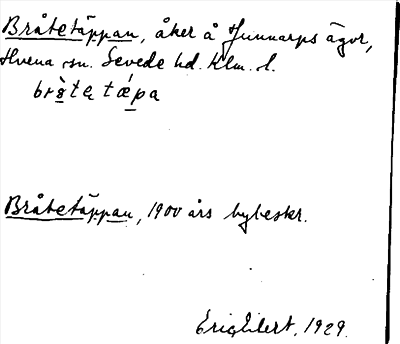 Bråtetäppan, åker å Gunnarps ägor,
Hvena sn. Sevede hd. Klm. l.
brò̱ta tǽpa
Bråtetäppan, 1900 års bybeskr.
Eric Elert, 1929.